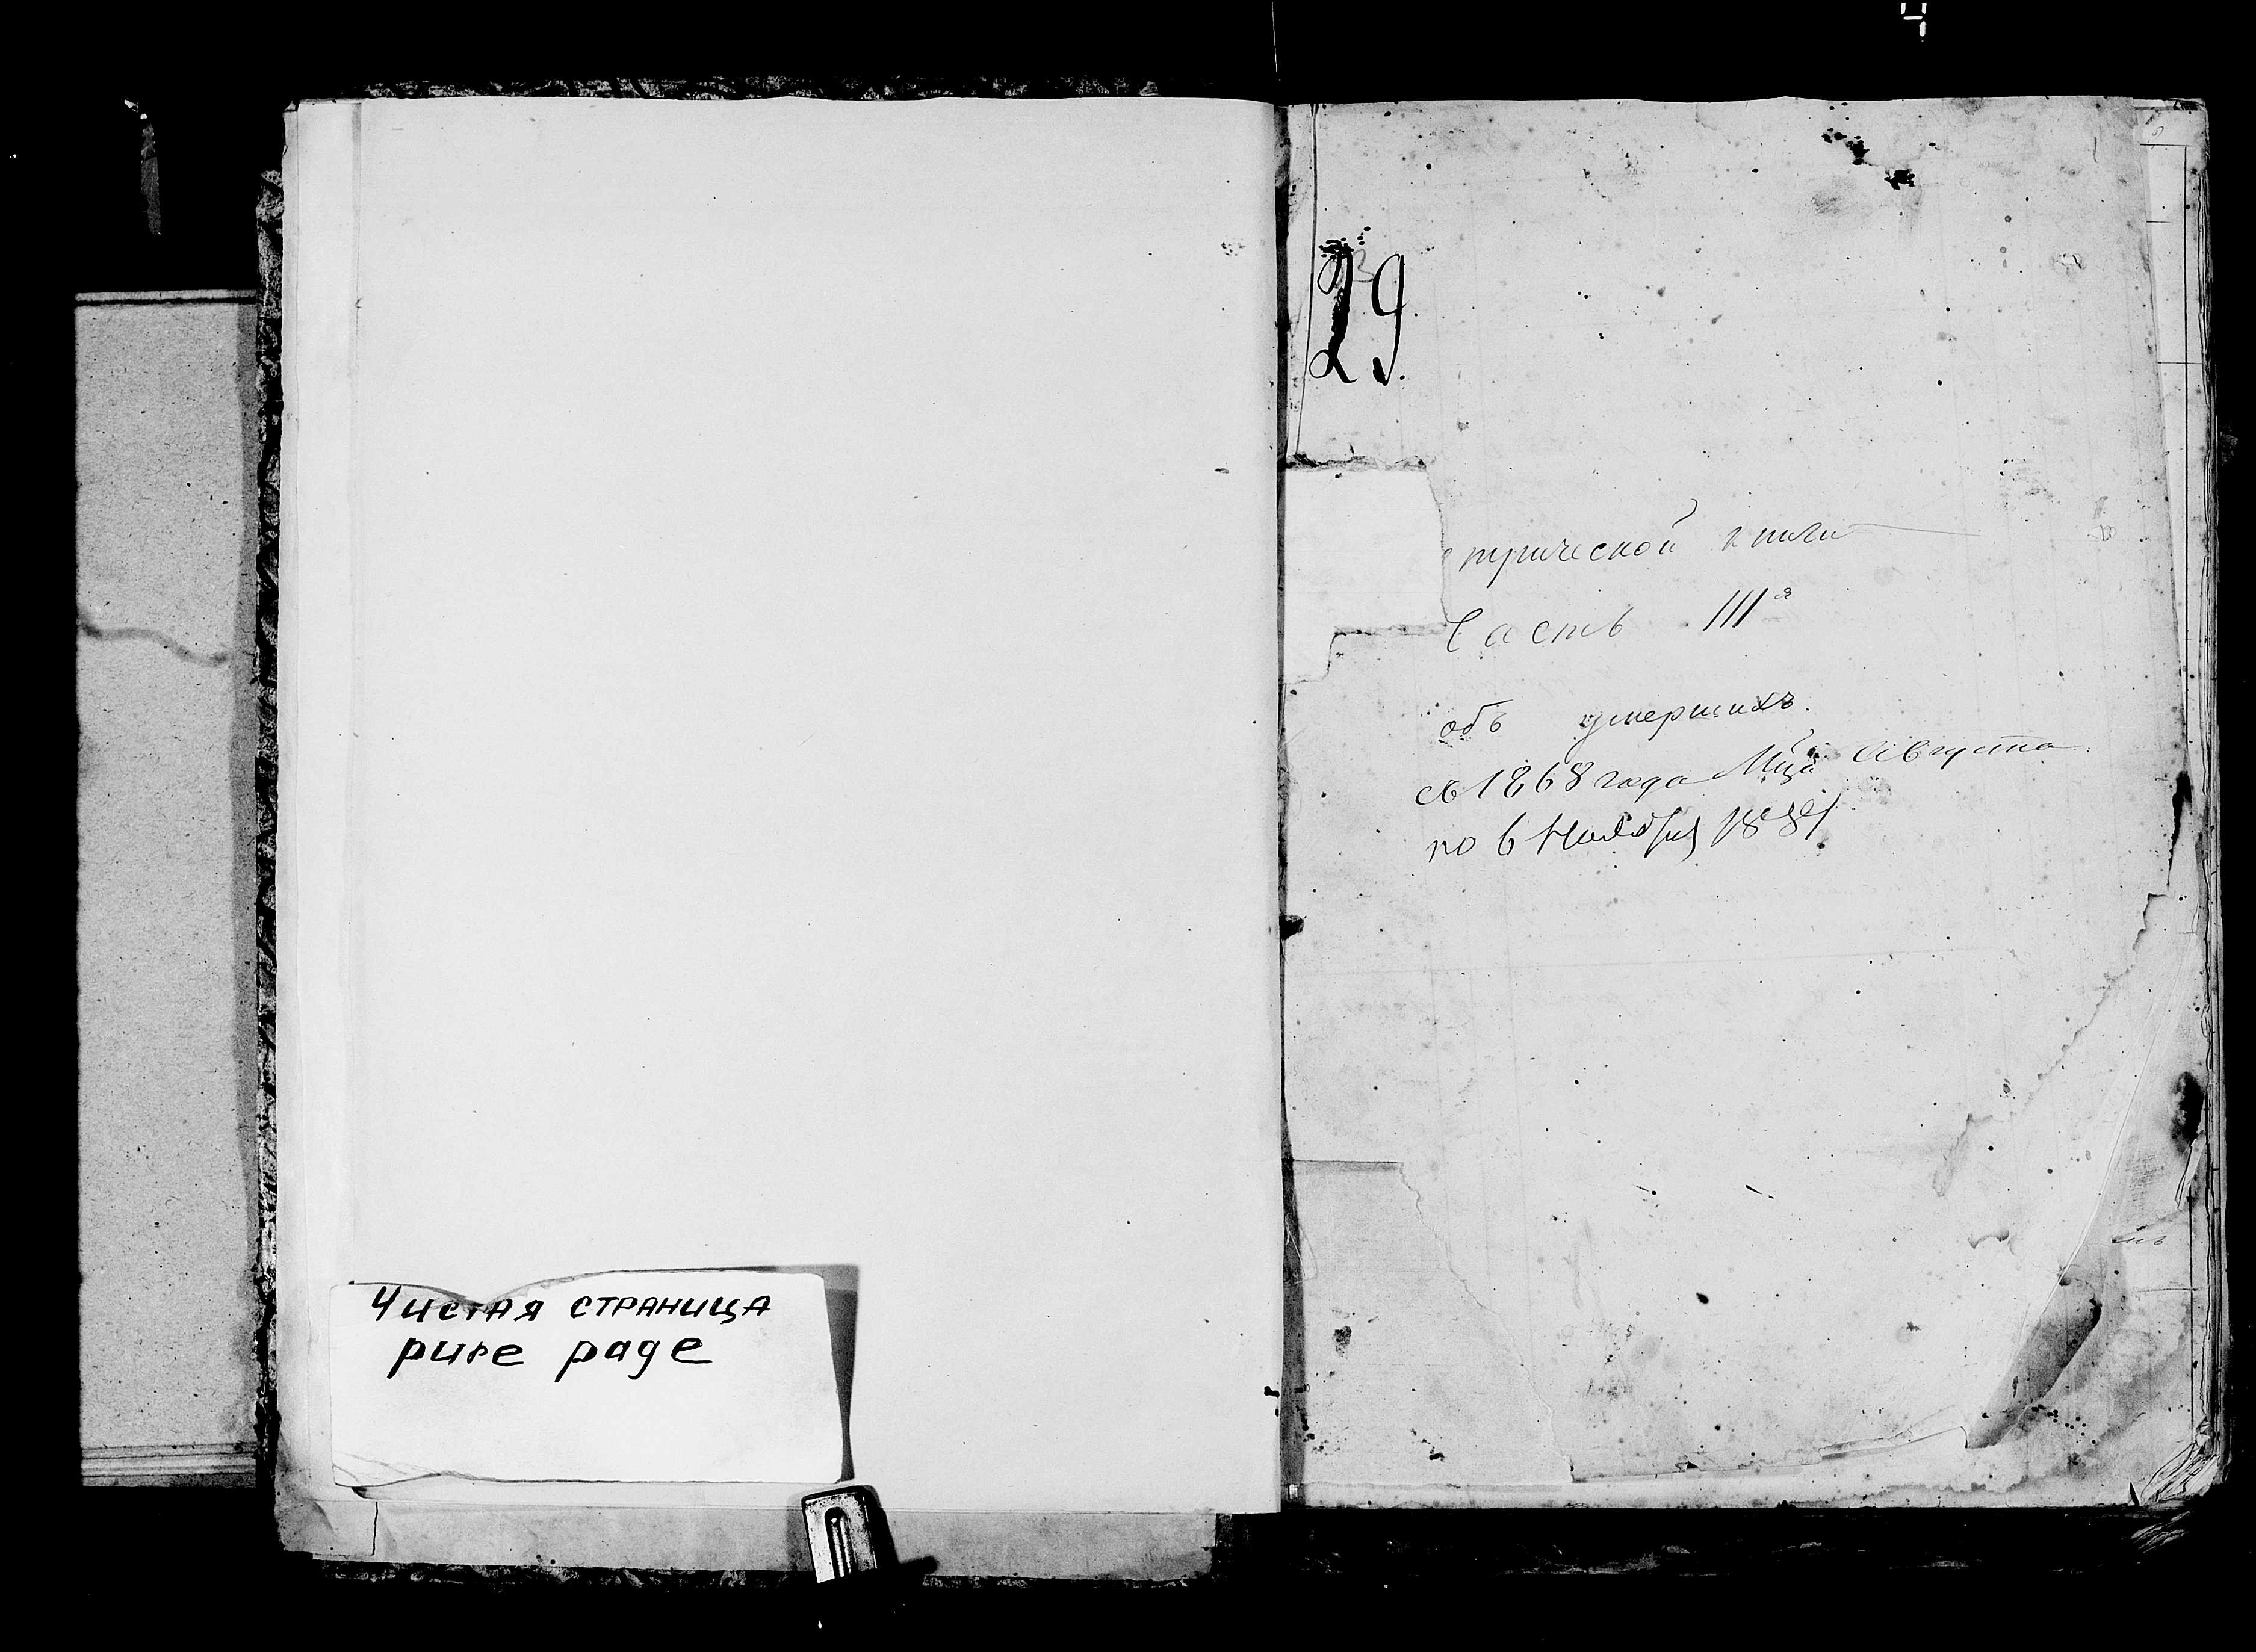 Чистая страница
pure page
29.
етрической книги
Часть IIIя
объ умершихъ.
съ 1868 года Мца Августа
по 6 Ноября